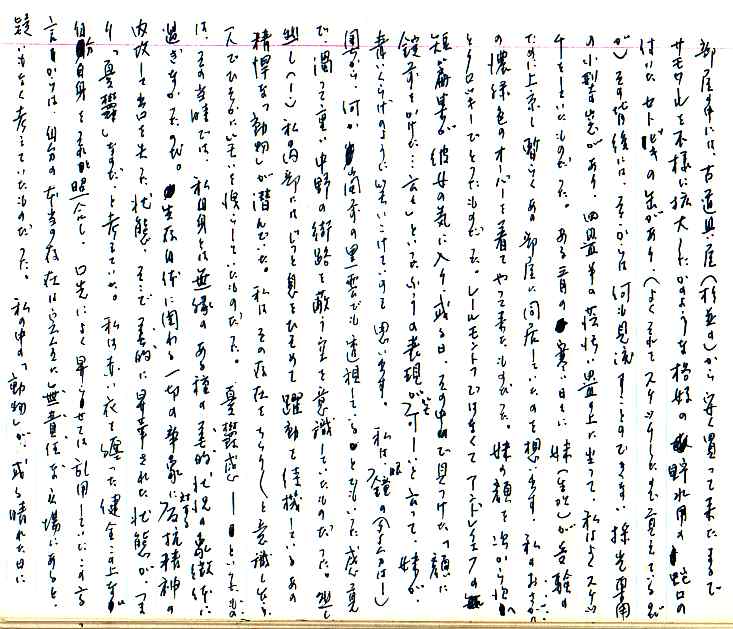 部屋の中には、古道具屋(杉並の)から安く買って来たまるで
サモワールを不様に拡大したかのような格好の 貯水用の 蛇口の
付いたセトビキの缶があり、(よくそれでスケッチしたのを覚えているが
が)その背後には、そこからは何も見渡すことのできない採光専用
の小型の窓があり、四畳半の 畳の上に坐って、私はよくスケッ
チをしていたものだった。ある三月の 寒い日に 妹( )が受験の
ために上京し暫らくあの部屋に同居していたのを想い出す。私のおさがり
の濃緑色のオーバーを着てやって来たものだった。妹の顔を次から次へ
とクロッキーでとったものだった。レールモントフではなくてアンドレーエフの
短い 彼女の気に入り或る日、その中で見つけた「顔に
錠前をかけた…云々」といったふうの表現がすごいと言って、妹が、
青い くらげのように笑いこけていたのを思い出す。私は
何か 黒雲でも透視しているとでもいった感覚
で、濁って重い中野の街路を蔽う空を意識していたものだった。
し(―)私の内部にはじっと息をひそめて躍動を待機しているあの
精悍な「動物」が潜んでいた。私はその存在をちらりと意識しながら
一人でひそかに笑いを洩らしていたものだった。憂鬱感――といったもの
は、その当時では、私自身とは無縁のある種の美的状況の象徴体に
過ぎなかったのだ。生存自体に関わる一切の事象に対する反抗精神の
内攻して出口を失った状態、そこで美的に昇華された状態が、つま
り「憂鬱」なのだ、と考えていた。私は赤い衣を纏った健全この上ない
自分自身を 照合し、口先によく昇らせては乱用していたこの言
葉 からは、自分の本当の存在は完全に無責任な立場にあると、
疑いもなく考えていたものだった。私の中の「動物」が、或る晴れた日に